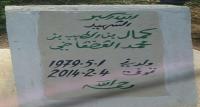 الله أكبر
الشهيد
كمال بن الطيب بن
محمد القضقاضي
ولد في 1979.5.1
توفي 2014.2.4
رحمه الله